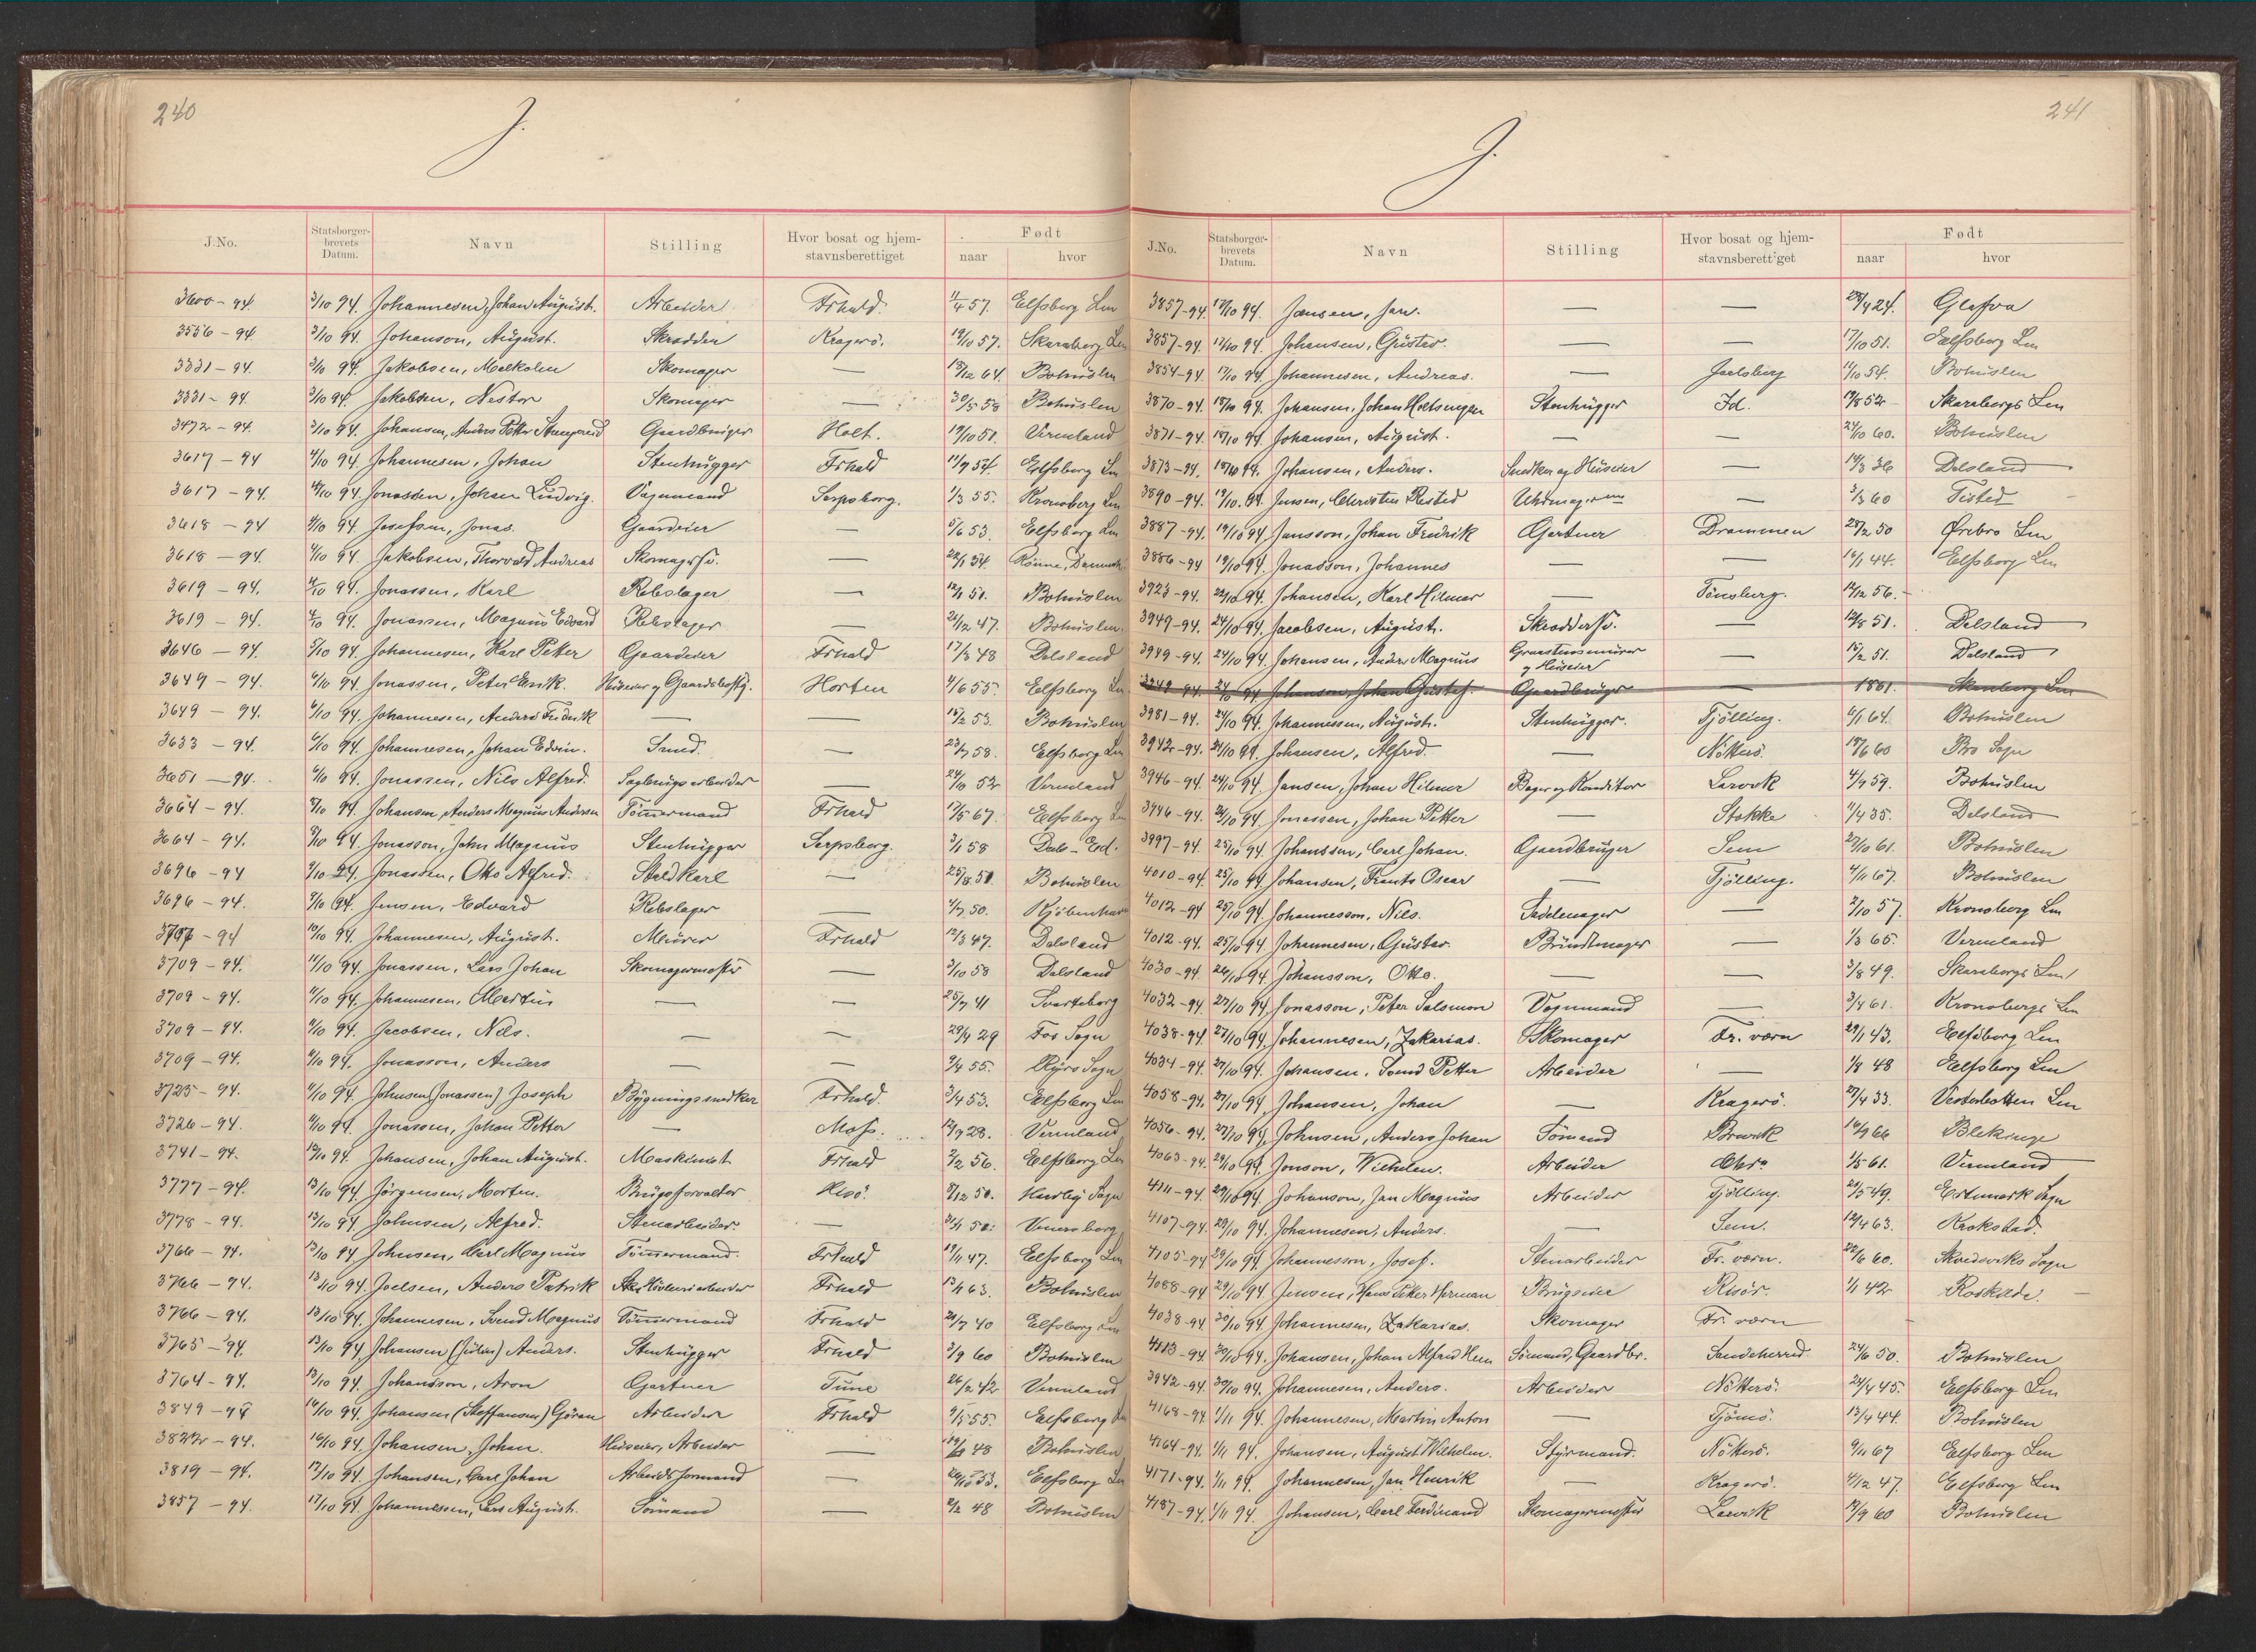 240
J.
J.No. Statsborger-brevets Datum. Navn Stilling Hvor bosat og hjem-stavnsberettiget Født naar hvor
3600 - 94. 3/10 94. Johannesen, Johan August. Arbeider Frhald. 11/4 57. Elfsborg Len
3556 - 94. 3/10 94. Johanson, August. Skrædder Kragerø. 19/10 57. Skaraborg Len
3331 - 94. 3/10 94. Jakobsen, Malkolm Skomager — 13/12 64. Bohuslen
3331 - 94. 3/10 94. Jakobsen, Nestor Skomager — 30/5 58 Bohuslen
3472 - 94. 3/10 94. Johansen, Anders Petter Gaardbruger Holt. 19/10 51. Vermland
3617 - 94 4/10 94. Johannesen, Johan Stenhugger Frhald 11/9 54. Elfsborg Len
3617 - 94. 4/10 94. Jonassen, Johan Ludvig. Vognmand Sarpsborg. 1/3 55. Kronoberg Len
3618 - 94 4/10 94. Josefsen, Jonas. Gaardeier — 5/6 53. Elfsborg Len
3618 - 94. 4/10 94. Jakobsen, Thorvald Andreas Skomagersv. — 22/1 54. Rønne, Danmark
3619 - 94. 4/10 94. Jonassen, Karl Rebslager — 51. Bohuslen
3619 - 94. 4/10 94. Jonassen, Magnus Edvard Rebslager — 21/12 47. Bohuslen.
3646 - 94. 5/10 94. Johannesen, Karl Peter Gaardeier Frhald 17/3 48 Dalsland
3649 - 94. 6/10 94. Jonassen, Peter Erik. Huseier og Horten 4/6 55. Elfsborg Len
3649 - 94. 6/10 94. Johannesen, Anders Fredrik — — 15/2 53. Bohuslen
3633 - 94. 6/10 94. Johannesen, Johan Edvin. Smed. — 23/7 58. Elfsborg Len
3651 - 94. 6/10 94. Jonassen, Nils Alfred. Sagbrugsarbeider — 24/10 52 Vermland
3664 - 94. 8/10 94. Johansen, Anders Magnus Andersen Tømmermand Frhald 17/5 67. Elfsborg Len
3664 - 94. 8/10 94. Jonasson, John Magnus Stenhugger Sarpsborg. 3/1 58 Dals-Ed.
3696 - 94 9/10 94. Jonassen, Otto Alfred. Staldkarl — 25/8 51. Bohuslen
3696 - 94. 9/10 94. Jensen, Edvard Rebslager — 4/7 50. Kjøbenhavn
3707 - 94 10/10 94. Johannesen, August. Murer Frhald 12/3 47. Dalsland
3709 - 94. 11/10 94. Jonassen, Lars Johan Skomagermester — 3/10 58 Dalsland
3709 - 94. 11/10 94. Johannesen, Martin — — 25/7 41 Svarteborg
3709 - 94. 11/10 94. Jacobsen, Nils. — — 29/4 29 Fos Sogn
3709 - 94. 11/10 94. Jonasson, Anders — — 9/4 55. Ryrs Sogn
3725 - 94. 11/10 94. Johnsen (Jonassen) Joseph Bygningssnedker Frhald. 3/4 53. Elfsborg Len
3726 - 94. 11/10 94. Jonassen, Johan Petter — Moss. 12/9 28. Vermland
3741 - 94. 12/10 94. Johansen, Johan August. Maskinist Frhald 2/2 56. Elfsborg Len
3777 - 94. 13/10 94. Jørgensen, Morten. Brugsforvalter Hisø. 8/12 50. Sogn
3778 - 94. 13/10 94 Johnsen, Alfred. Stenarbeider — 50. Venersborg
3766 - 94. 13/10 94 Johnsen, Carl Magnus Tømmermand. Frhald 19/11 47. Elfsborg Len
3766 - 94. 13/10 94. Joelsen, Anders Patrik Frhald 13/1 63. Bohuslen
3766 - 94. 13/10 94. Johannesen, Svend Magnus Tømmermand Frhald 21/7 40 Elfsborg Len
3765 - 94. 13/10 94. Johansen (Julin) Anders. Stenhugger Frhald 3/9 60 Bohuslen
3764 - 94. 13/10 94. Johansson, Aron Gartner Tune 26/2 42 Vermland
3849 - 94 16/10 94. Johansen (Steffansen) Göran Arbeider Frhald 9/5 55. Elfsborg Len
3822 - 94. 16/10 94. Johansen, Johan. Huseier, Arbeider — 48 Bohuslen
3819 - 94. 17/10 94. Johansen, Carl Johan Arbeidsformand — 53. Elfsborg Len
3857 - 94. 17/10 94. Johannessen, Lars August. Sømand — 2/2 48 Bohuslen
241
J.
J.No. Statsborger-brevets Datum. Navn Stilling Hvor bosat og hjem-stavnsberettiget Født naar hvor
3857-94. 17/10 94. Jansen, Jan. — — 28/4 24. Glafva
3857-94. 17/10 94. Johansen, Gustav. — — 17/10 51. Elfsborg Len
3854-94. 17/10 94. Johannesen, Andreas. — Jarlsberg 11/10 54. Bohuslen
3870-94. 18/10 94. Johansen, Johan Stenhugger Id. 19/8 52 Skaraborgs Len
3871-94. 18/10 94. Johanson, August. — — 21/10 60. Bohuslen
3873-94. 18/10 94. Johansen, Anders. Snedker og Huseier — 19/3 36 Dalsland
3890-94. 19/10 94. Jensen, Christen Risted Uhrmager — 3/3 60 Tisted
3887-94. 19/10 94 Jansson, Johan Fredrik Gartner Drammen 28/2 50 Ørebro Len
3886-94 19/10 94. Jonasson, Johannes — — 16/1 44. Elfsborg Len
3923-94. 22/10 94. Johansen, Karl Hilmar — Tønsberg. 12/12 56.
3949-94. 24/10 94. Jacobsen, August. Skræddersv. — 12/8 51. Dalsland
3949-94. 24/10 94. Johansen, Anders Magnus Graastensmurer og Huseier — 15/2 51. Dalsland
3949-94. 24/10 94 Johanson, Johan Gustaf. Gaardbruger — 1861. Skaraborg Len
3981-94. 24/10 94. Johannessen, August. Stenhugger. Tjølling. 6/1 64. Bohuslen
3942-94. 24/10 94. Johansen, Alfred. — Nøtterø. 18/6 60 Bro Sogn
3946-94. 24/10 94. Jansen, Johan Hilmer Bager og Konditor Larvik 4/9 59. Bohuslen
3946-94. 24/10 94. Jonassen, Johan Petter — Stokke 11/4 35. Dalsland
3997-94. 25/10 94. Johanssen, Carl Johan. Gaardbruger Sem 27/10 61. Bohuslen
4010-94. 25/10 94. Johansen, Frants Oscar — Tjølling. 4/11 67. Bohuslen
4012-94 25/10 94. Johannesson, Nils. Sadelmager — 2/10 57. Kronoberg Len
4012-94. 25/10 94. Johannesen, Gustav. Bundtmager — 1/3 65. Vermland
4030-94. 26/10 94. Johansson, Otto. — — 3/8 49. Skaraborgs Len
4032-94 27/10 94. Jonasson, Peter Salomon Vognmand — 3/4 61. Kronobergs Len
4038-94. 27/10 94. Johannesen, Zakarias. Skomager Fr. værn 29/1 43. Elfsborg Len
4034-94. 27/10 94. Johansen, Svend Petter Arbeider — 1/8 48 Elfsborg Len
4058-94. 27/10 94. Johansen, Johan — Kragerø. 27/4 33. Vesterbotten Len
4056-94. 27/10 94. Johnsen, Anders Johan Sømand Brevik 16/9 66 Blekinge
4063-94. 29/10 94. Jonson, Wilhelm. Arbeider Chra 1/5 61. Vermland
4111-94. 29/10 94. Johanson, Jan Magnus Arbeider Tjølling. 20/5 49. Ertemark Sogn
4107-94. 29/10 94. Johannesen, Anders. — Sem. 12/4 63. Krokstad.
4105-94 29/10 94. Johannesson, Josef. Stenarbeider Fr. værn. 22/6 60. Skredsviks Sogn
4088-94 29/10 94. Jensen, Hans Peter Herman Brugseier Risør. 1/1 42 Roskilde.
4038-94. 30/10 94. Johannesen, Zakarias. Skomager Fr. værn
4113-94. 30/10 94. Johansen, Johan Alfred Hem Sømand, Gaardbr. Sandeherred 24/6 50. Bohuslen
3942-94. 30/10 94. Johannesen, Anders. Arbeider Nøtterø. 24/4 45. Elfsborg Len
4168-94. 1/11 94. Johannesen, Martin Anton — Tjømø. 13/4 44. Bohuslen
4164-94. 1/11 94. Johansen, August Wilhelm. Styrmand. Nøtterø. 9/11 67 Elfsborg Len
4171-94. 1/11 94. Johannesen, Jan Henrik — Kragerø. 4/12 47. Elfsborg Len
4187-94. 1/11 94. Johansen, Carl Ferdinand Skomagermester Larvik 12/9 60 Bohuslen